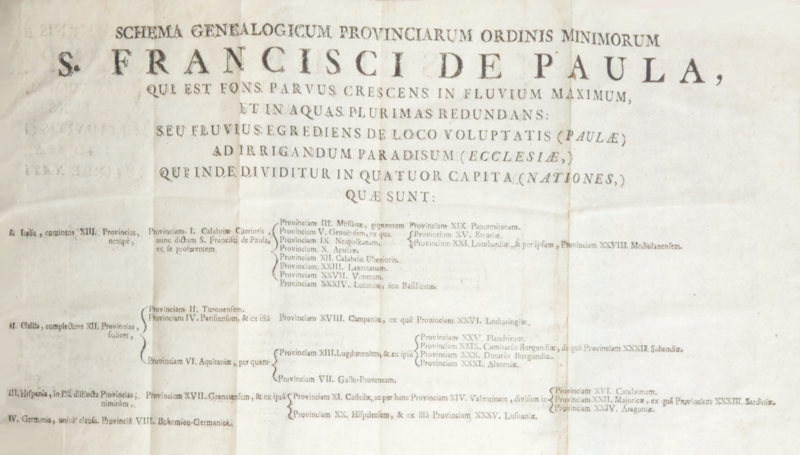 SCHEMA GENEALOGICUM PROVINCIARUM ORDINIS MINIMORUM
S. FRANCISCI DE PAULA,
QUI EST FONS PARVUS CRESCENS IN FLUVIUM MAXIMUM,
ET IN AQUAS PLURIMAS REDUNDANS:
SEU FLUVIUS EGREDIENS DE LOCO VOLUPTATIS (PAULÆ)
AD IRRIGANDUM PARADISUM (ECCLESIÆ,)
QUI INDE DIVIDITUR IN QUATUOR CAPITA (NATIONES,)
QUÆ SUNT:
Italia, continens XIII. Provincias, nempè,
Provinciam I. Calabriæ Citerioris, nunc dictam S. Francisci de Paula, ex se proferentem.
Provinciam III. Messanæ, gignentem Provinciam XIX. Panormitanam.
Provinciam V. Genuensem, ex qua
Provinciam XV. Etruriæ.
Provinciam XXI. Longobardiæ, & per ipsam, Provinciam XXVIII. Mediolanensem.
Provinciam IX. Neapolitanam.
Provinciam X. Apuliæ.
Provinciam XII. Calabriæ Ulterioris.
Provinciam XXIII. Lauretanam.
Provinciam XXVII. Venetam.
Provinciam XXXIV. Lucaniæ, seu Basilicatæ.
II. Gallia, complectens XII. Provincias, scilicet,
Provinciam II. Turonensem.
Provinciam IV. Parisiensem, & ex illâ Provinciam XVIII. Campaniæ, ex quâ Provinciam XXVI. Lotharingiæ.
Provinciam VI. Aquitaniæ, per quam
Provinciam XIII. Lugdunensem, & ex ipsâ
Provinciam XXV. Flandricam.
Provinciam XXIX. Comitatûs Burgundiæ, de quâ Provinciam XXXII. Sabaudiæ.
Provinciam XXX. Ducatûs Burgundiæ.
Provinciam XXXI. Alverniæ.
Provinciam VII. Gallo-Provencam.
III. Hispania, in distincta Provincias, nimirùm,
Provinciam XVII. Granatensem, & ex ipsâ
Provinciam XI. Castellæ, ac per hanc Provinciam XIV. Valentinam, divisam in
Provinciam XVI. Catalaunam.
Provinciam XXII. Majoricæ, ex quâ Provinciam XXXIII. Sardiniæ.
Provinciam XXIV. Aragoniæ.
Provinciam XX. Hispalensem, & ex illâ Provinciam XXXV. Lusitaniæ.
IV. Germania, unicâ clausa Provinciâ VIII. Bohemico-Germanicâ.